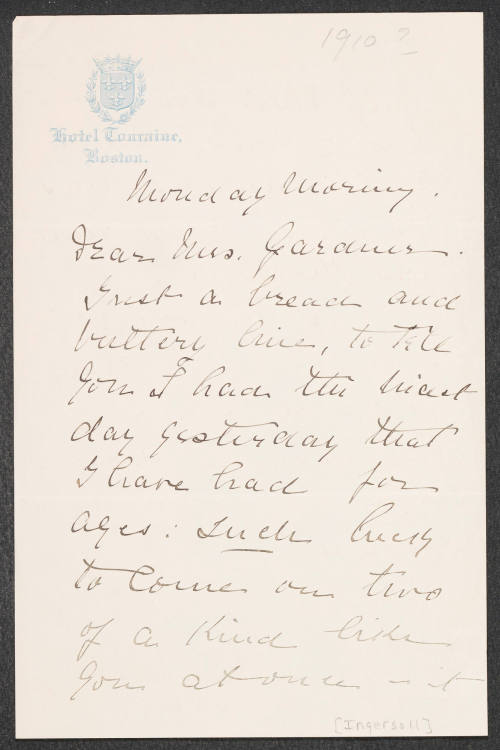 1910?
Hotel Touraine,
Boston.
Monday Morning.
Dear Mrs. Gardner.
Just a bread and
buttery line, to tell
you I had the nicest
day yesterday that
I have had for
ages: Such luck
to come on two
of a kind like
you at once - it
[Ingersoll]